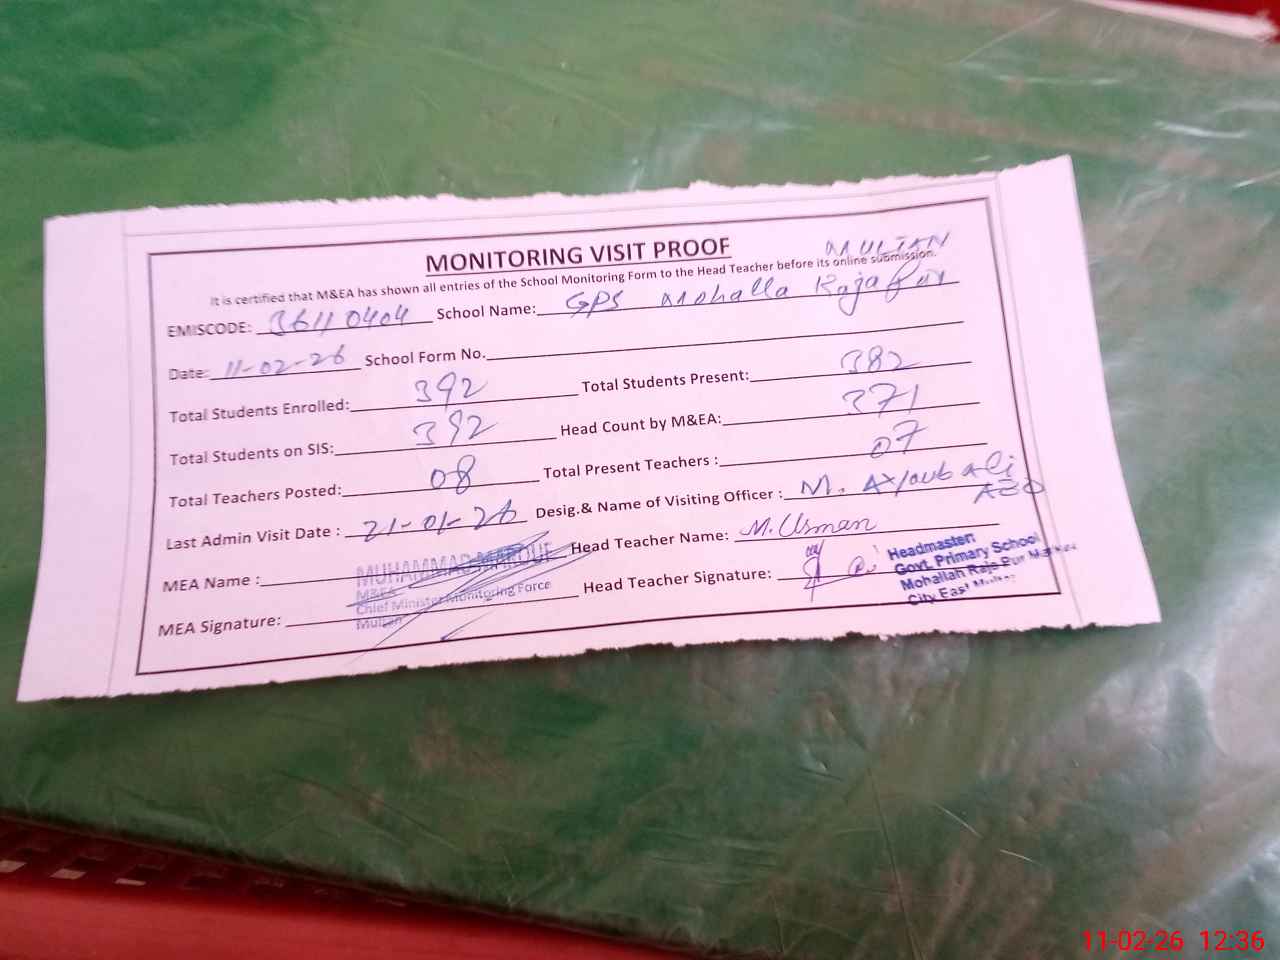 MONITORING VISIT PROOF
It is certified that M&EA has shown all entries of the School Monitoring Form to the Head Teacher before its online submission.
MULTAN
EMISCODE: 36110404 School Name: GPS Mohalla Rajapur
Date: 11-02-26 School Form No.
Total Students Enrolled: 392 Total Students Present: 382
Total Students on SIS: 392 Head Count by M&EA: 371
Total Teachers Posted: 08 Total Present Teachers : 07
Last Admin Visit Date : 21-01-26 Desig.& Name of Visiting Officer : M. Ayoub Ali
AEO
MEA Name : MUHAMMAD MAROUF Head Teacher Name: M. Usman
M&EA
Chief Minister Monitoring Force
Multan
MEA Signature: Head Teacher Signature:
Headmaster
Govt. Primary School
Mohallah Raja Pur Markaz
City East Multan
11-02-26 12:36